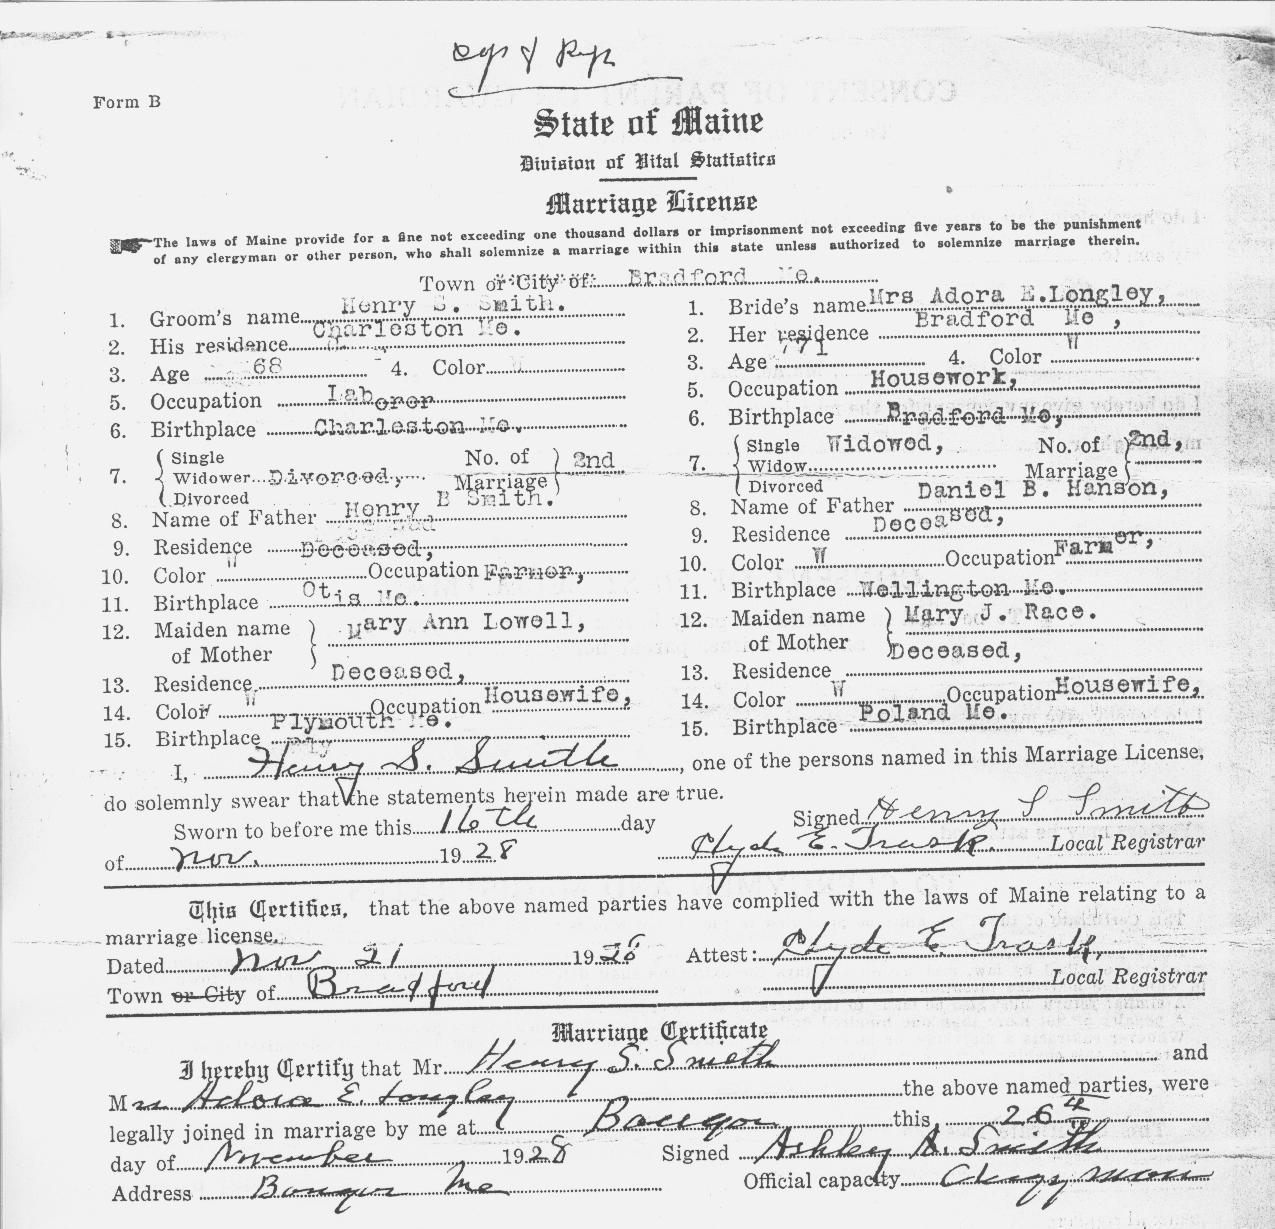 Form B
State of Maine
Division of Vital Statistics
Marriage License
The laws of Maine provide for a fine not exceeding one thousand dollars or imprisonment not exceeding five years to be the punishment
of any clergyman or other person, who shall solemnize a marriage within this state unless authorized to solemnize marriage therein.
Town or City of Bradford Me.
1. Groom's name Henry S. Smith.
2. His residence Charleston Me.
3. Age 68 4. Color W
5. Occupation Laborer
6. Birthplace Charleston Me.
7. Single Widower Divorced Divorced, No. of Marriage 2nd
8. Name of Father Henry B Smith.
9. Residence Deceased,
10. Color W Occupation Farmer,
11. Birthplace Otis Me.
12. Maiden name of Mother Mary Ann Lowell,
13. Residence Deceased,
14. Color W Occupation Housewife,
15. Birthplace Plymouth Me.
1. Bride's name Mrs Adora E.Longley,
2. Her residence Bradford Me ,
3. Age 71 4. Color W
5. Occupation Housework,
6. Birthplace Bradford Me,
7. Single Widow Divorced Widowed, No. of Marriage 2nd,
8. Name of Father Daniel B. Hanson,
9. Residence Deceased,
10. Color W Occupation Farmer,
11. Birthplace Wellington Me.
12. Maiden name of Mother Mary J. Race.
13. Residence Deceased,
14. Color W Occupation Housewife,
15. Birthplace Poland Me.
I, Henry S. Smith, one of the persons named in this Marriage License,
do solemnly swear that the statements herein made are true.
Sworn to before me this 16th day Signed Henry S Smith
of Nov. 1928 Clyde E. Trask. Local Registrar
This Certifies, that the above named parties have complied with the laws of Maine relating to a
marriage license.
Dated Nov 21 1928 Attest: Clyde E. Trask,
Town or City of Bradford Local Registrar
Marriage Certificate
I hereby Certify that Mr. Henry S. Smith and
Mrs Adora E. Longley the above named parties, were
legally joined in marriage by me at Bangor this, 26th
day of November 1928 Signed Ashley A. Smith
Address Bangor Me Official capacity Clergyman